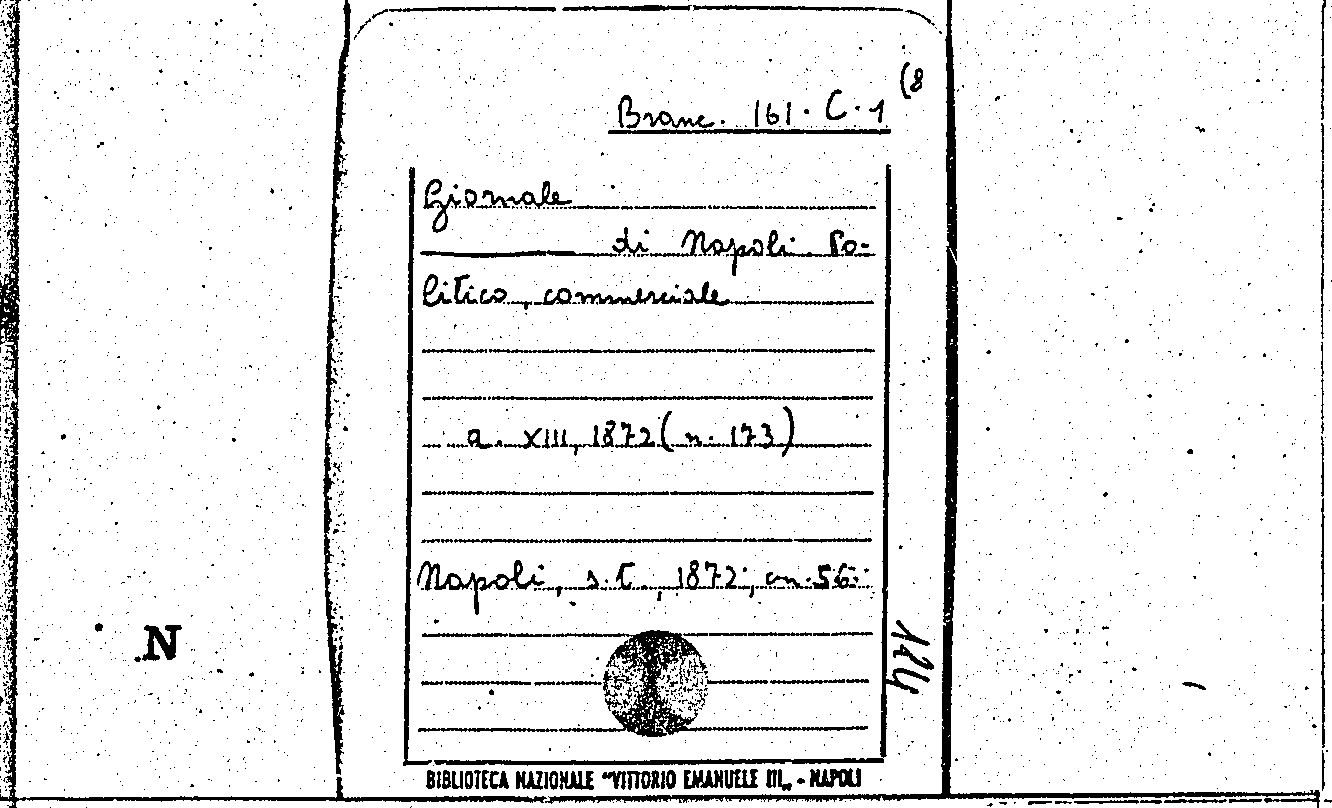 (8
Branc. 161. C. 1
Giornale
di Napoli. Po-
litico, commerciale
a. XIII, 1872 (n. 173)
Napoli, s.t., 1872; cm. 56.
124
N
BIBLIOTECA NAZIONALE "VITTORIO EMANUELE III„ - NAPOLI